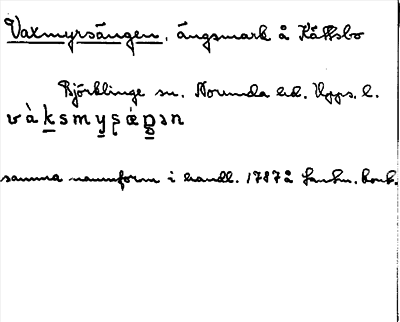 Vaxmyrsängen, ängsmark å Kättsbo
Björklinge sn. Norunda hd. Upps. l.
v à k s m y ʂ æ̀ ŋ ə n
samma namnform i handl. 1787 2 Lantm. kont.